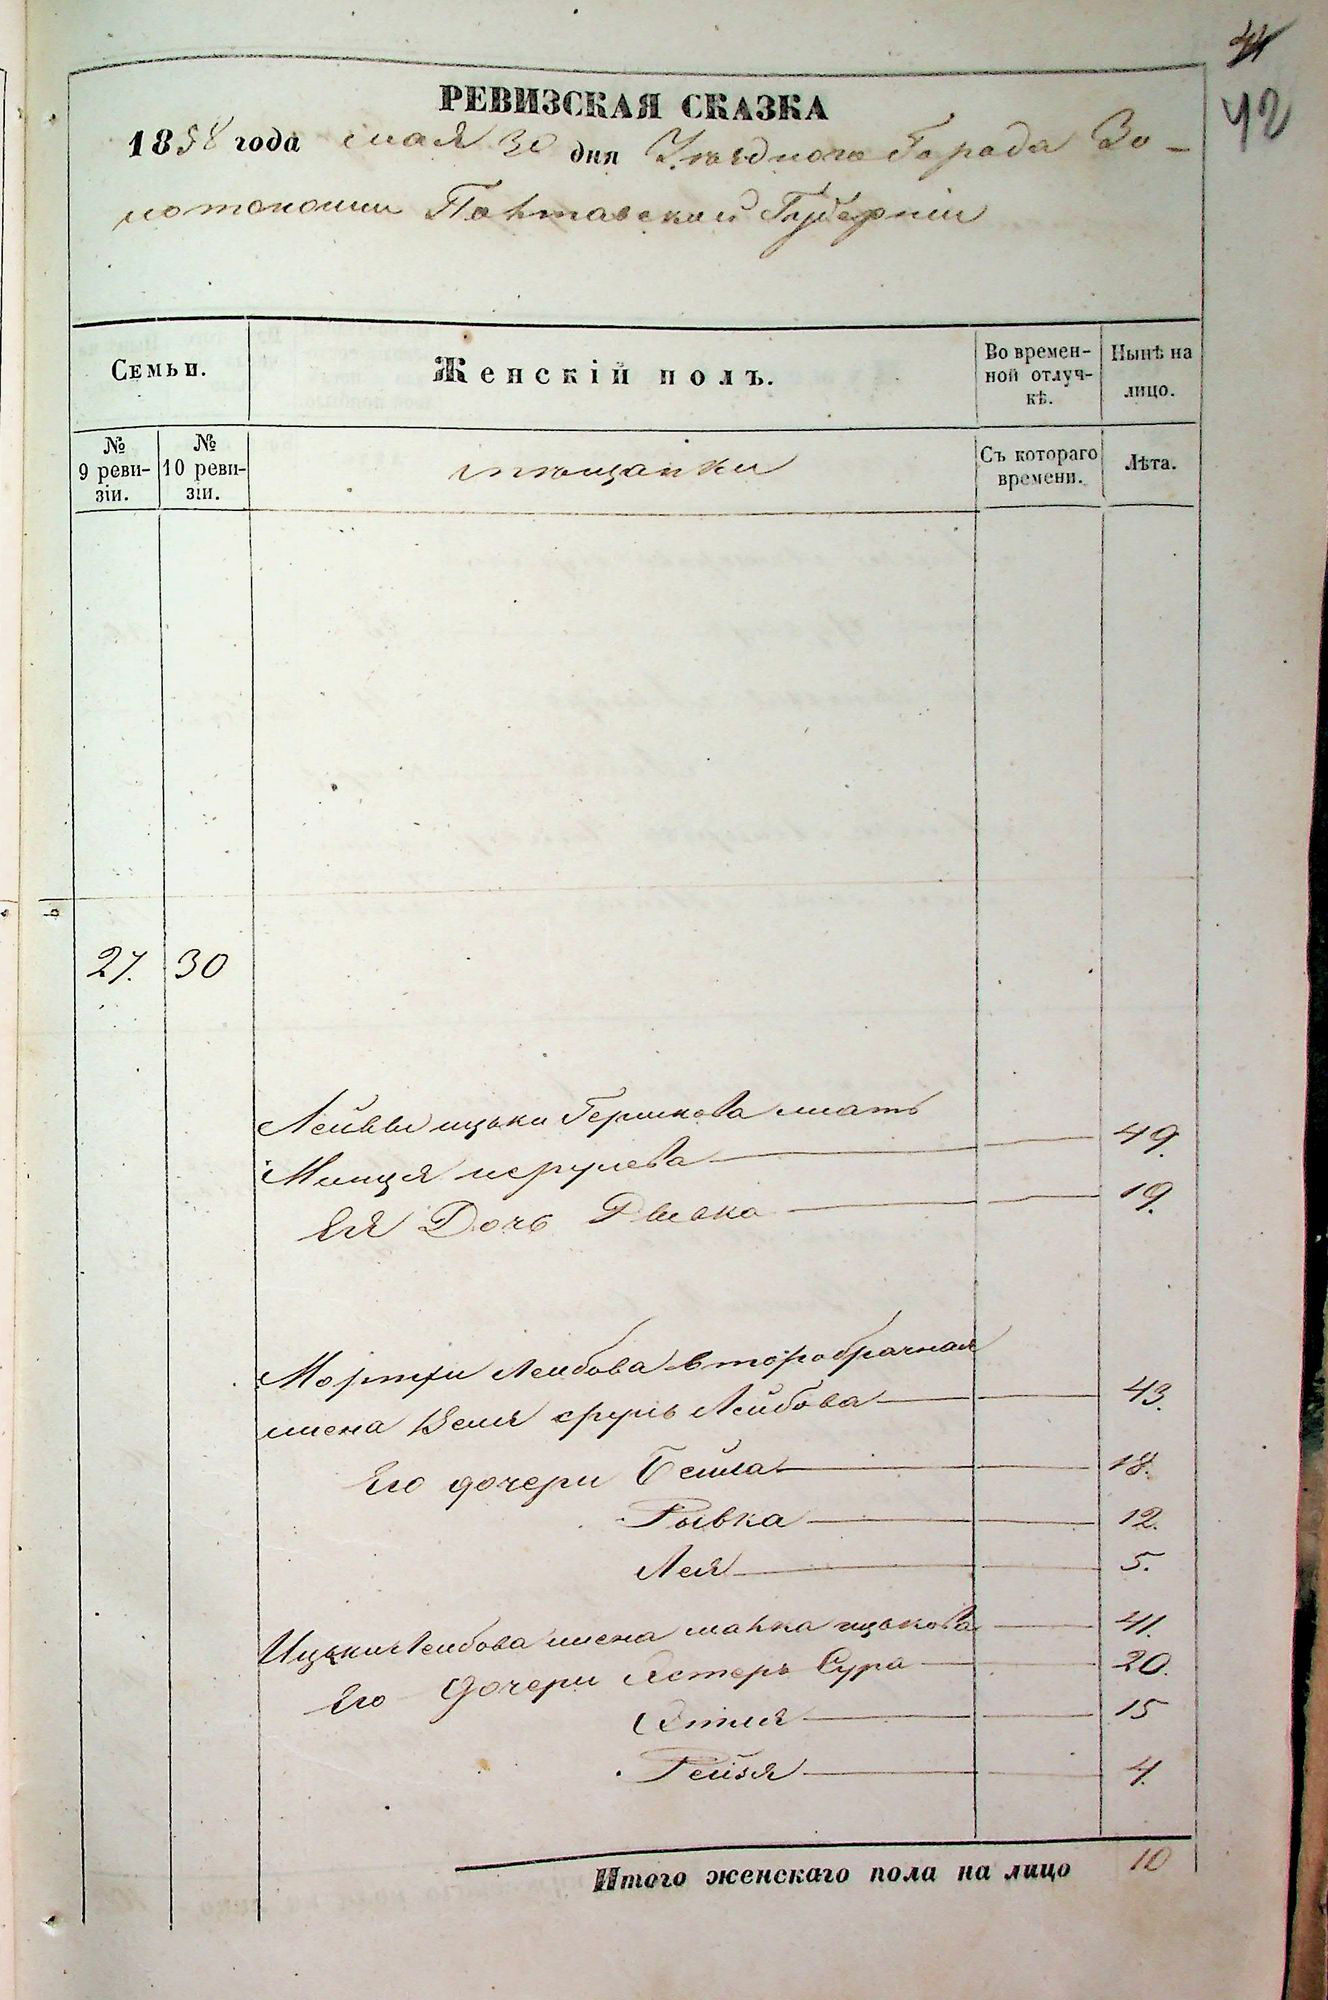 42
РЕВИЗСКАЯ СКАЗКА
1858 года мая 30 дня Уѣзднаго Города Зо-
лотоноши Полтавской Губерніи
Семьи.
Женскій полъ.
Во времен-
ной отлуч-
кѣ.
Нынѣ на
лицо.
№
9 реви-
зіи.
№
10 реви-
зіи.
мѣщанки
Съ котораго
времени.
Лѣта.
27. 30
Лейбы ицьки Гершкова мать
Минця 49.
Ея Дочь Рывка 19.
Мортхи Леибова второбрачная
жена сруль Лейбова 43.
Его дочери Бейла 18.
Рывка 12.
Лея 5.
Ицьки Леибова жена малка ицькова 41.
Его дочери Эстерь Сура 20.
Этля 15
Рейзя 4.
Итого женскаго пола на лицо 10